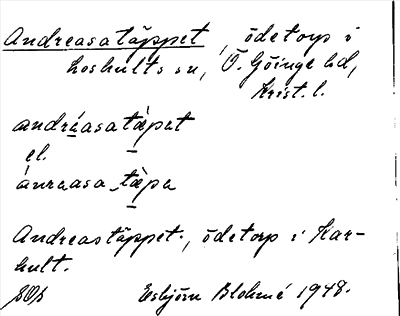 Andreasatäppet, ödetorp i
Loshults sn, Ö. Göinge hd,
Krist. l.
andráasatäpat
el.
ánraasa_täpa
Andreastäppet., ödetorp i Kar-
hult.
Esbjörn Blohmé 1948.